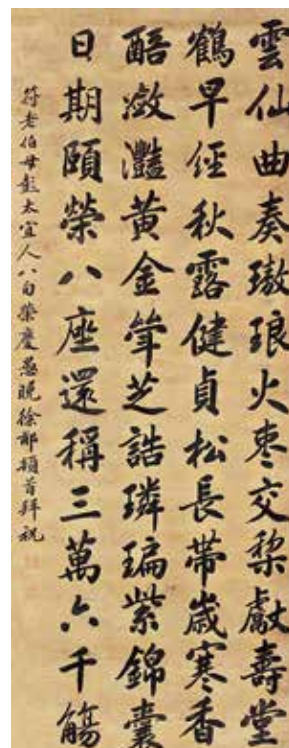 雲仙曲奏璈琅火枣交棃獻壽堂
鶴早經秋露健貞松長帶歲寒香
醅瀲灧黃金斝芝誥璘㻞紫錦囊
日期頤榮八座還稱三萬六千觴
符老伯母彭太宜人八旬榮慶愚晚徐郙頓首拜祝